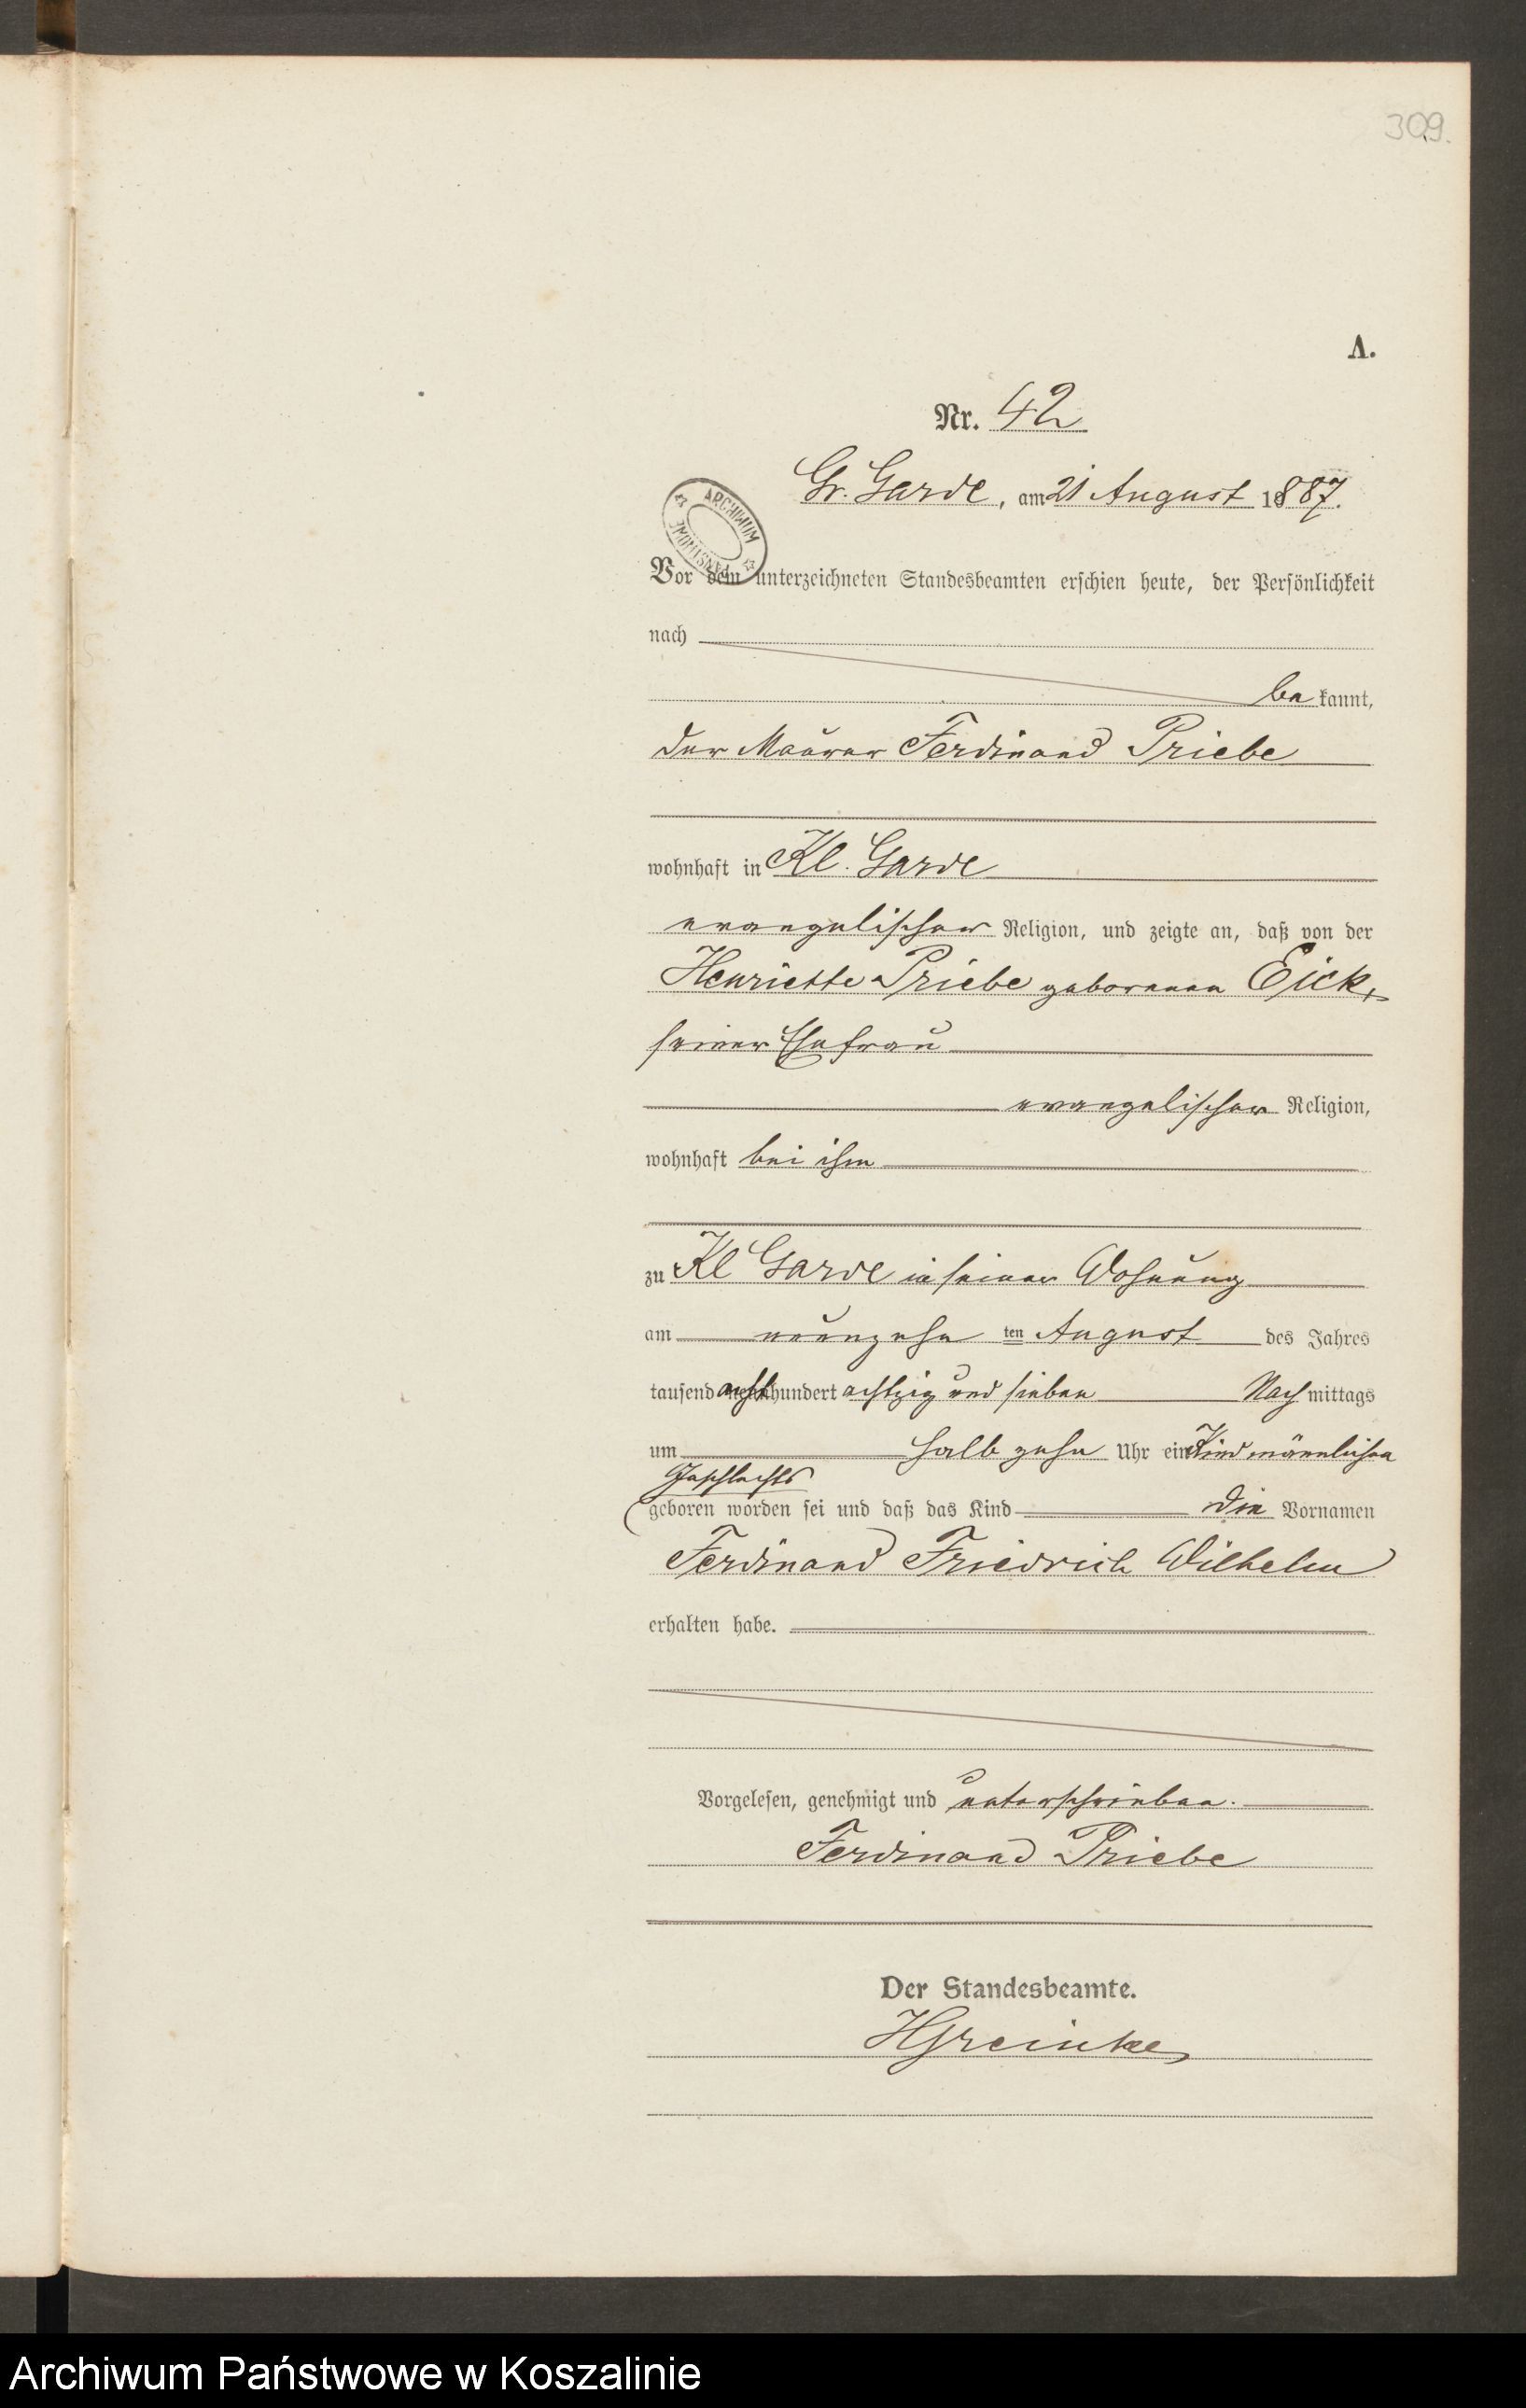 309.
A.
Nr. 42
Gr. Garde, am 21 August 1887.
ARCHIWUM PAŃSTWOWE
Vor dem unterzeichneten Standesbeamten erschien heute, der Persönlichkeit
nach
be kannt,
der Maurer Ferdinand Priebe
wohnhaft in Kl. Garde
evangelischer Religion, und zeigte an, daß von der
Henriette Priebe geborenen Eick,
seiner Ehefrau
evangelischer Religion,
wohnhaft bei ihm
zu Kl Garde in seiner Wohnung
am neunzehn ten August des Jahres
tausend acht hundert achtzig und sieben Nach mittags
um halb zehn Uhr ein Kind männlichen
Geschlechts
geboren worden sei und daß das Kind die Vornamen
Ferdinand Friedrich Wilhelm
erhalten habe.
Vorgelesen, genehmigt und unterschrieben.
Ferdinand Priebe
Der Standesbeamte.
HGreinke
Archiwum Państwowe w Koszalinie